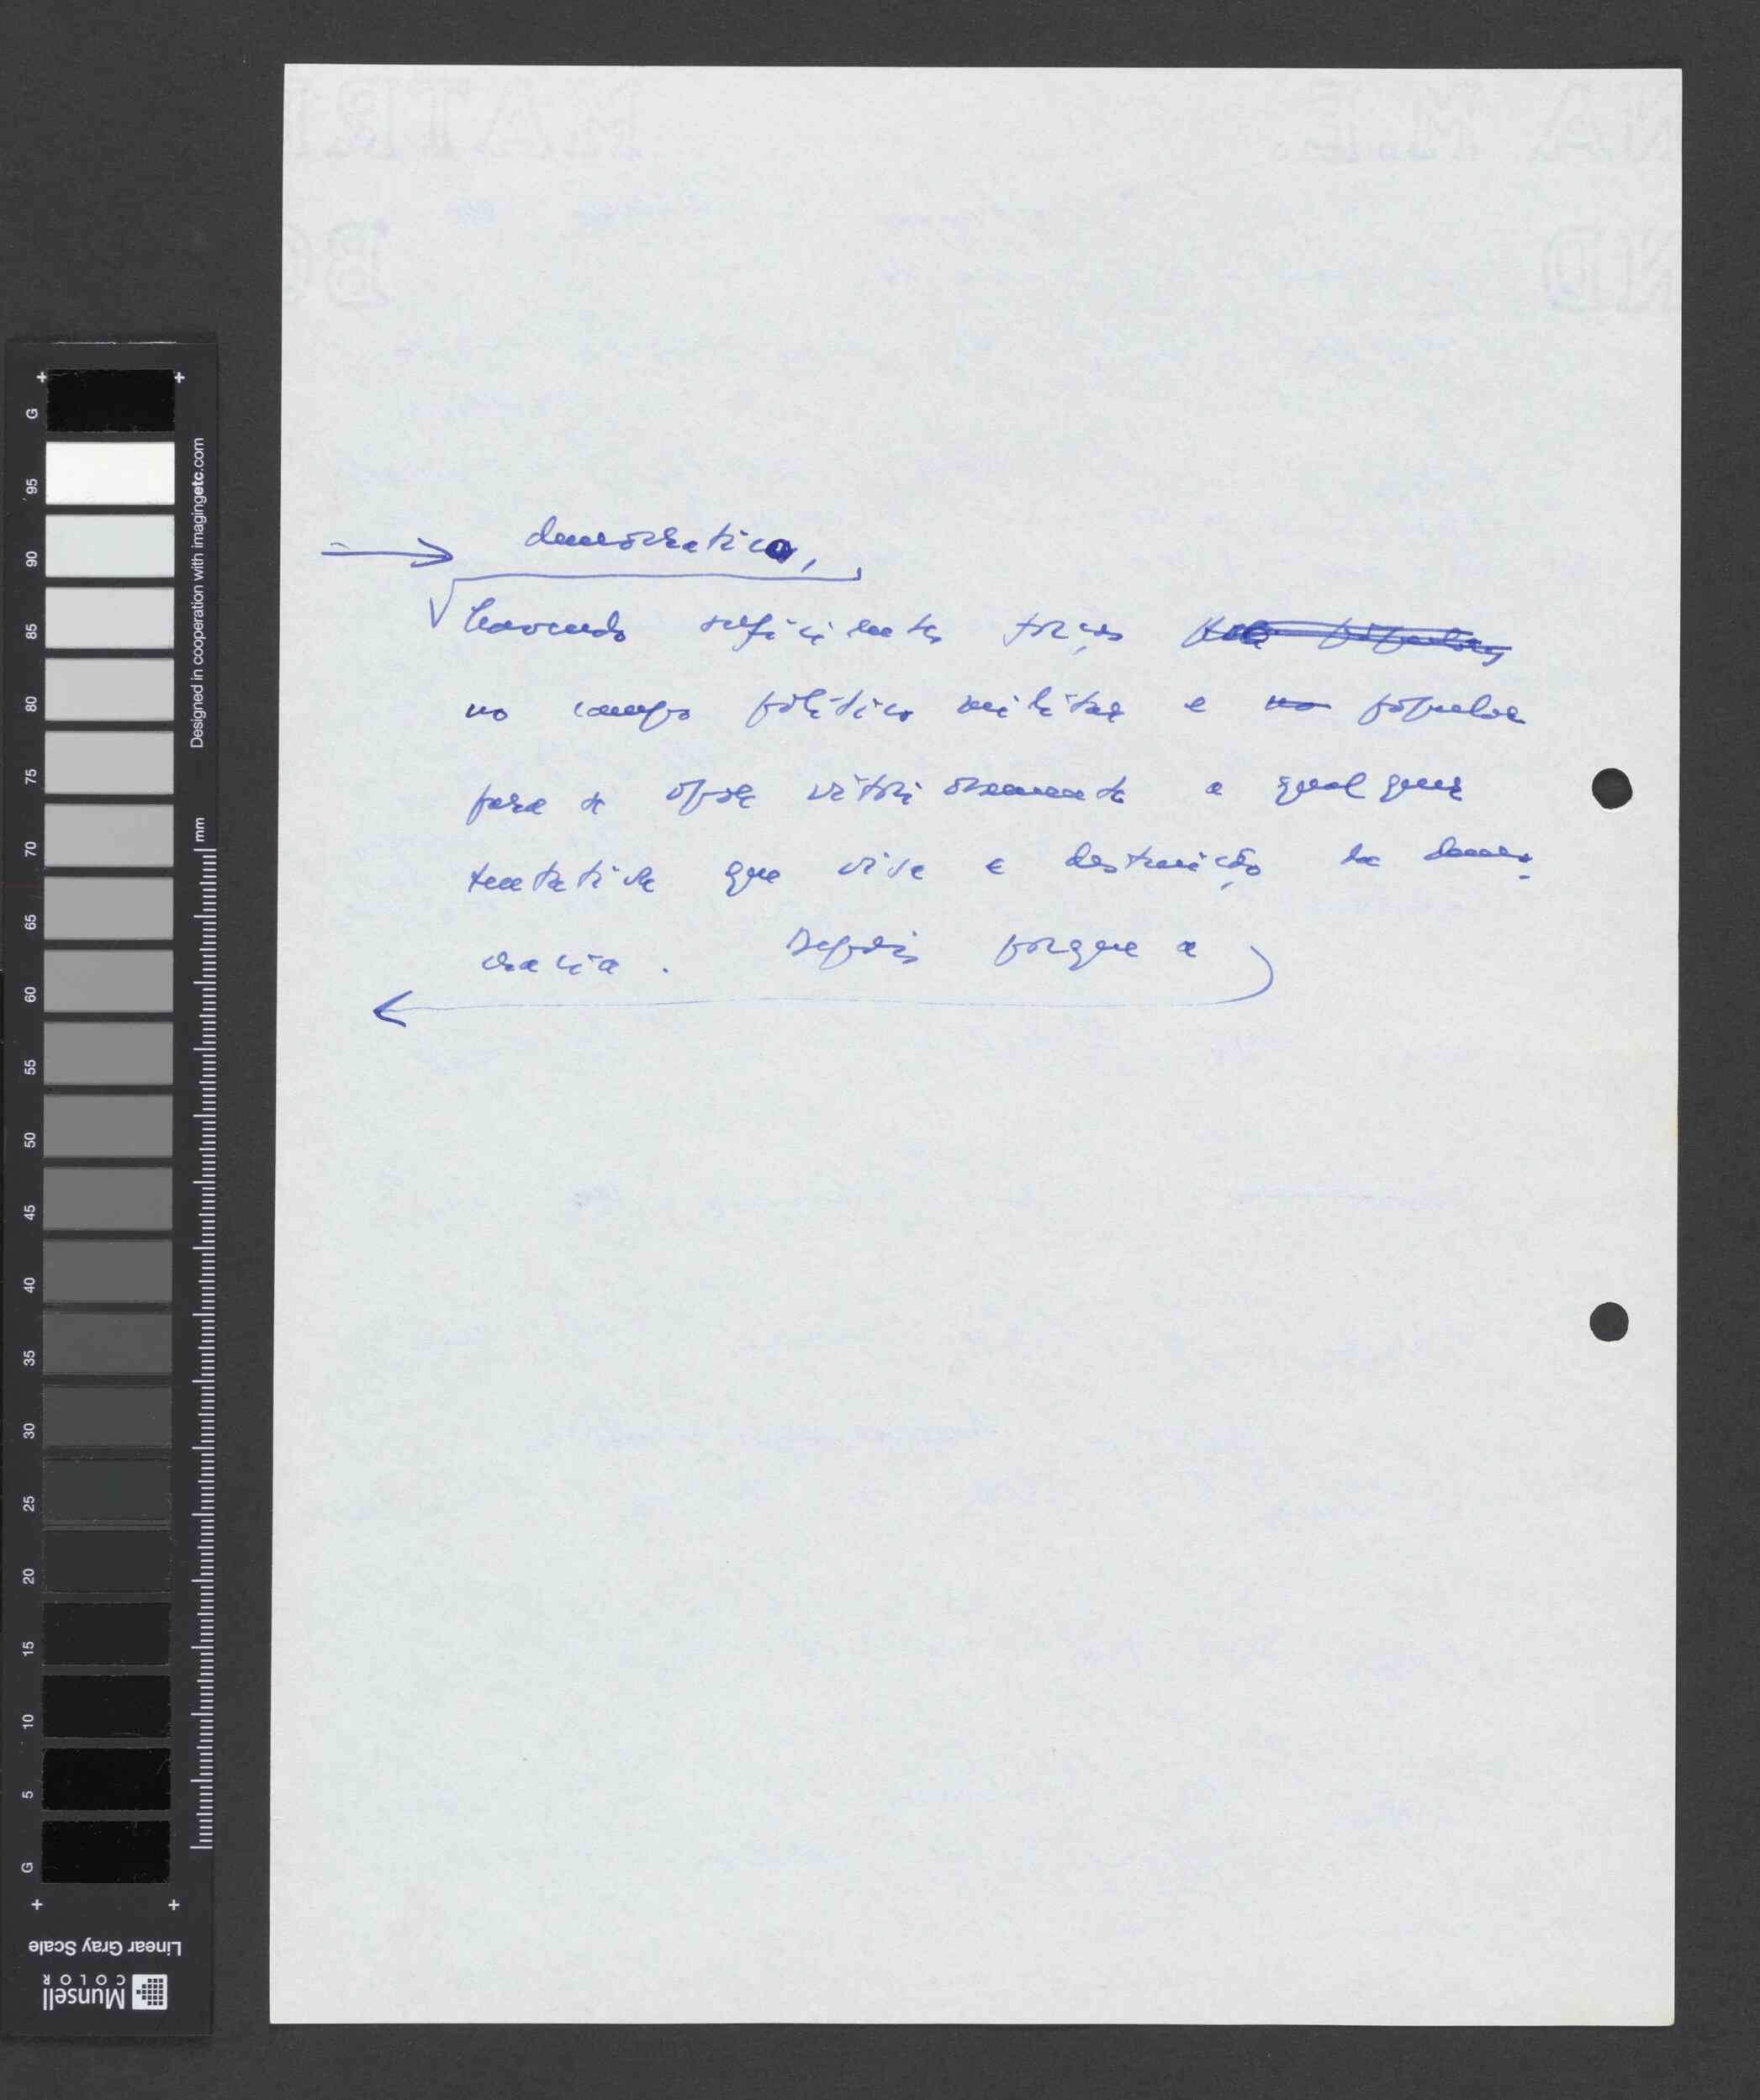 democratica,
havendo suficientes forças populares
no campo politico militar e no popular
para se opôr vitoriosamente a qualquer
tentativa que vise a destruição da demo-
cracia. Depois porque a
G
95
90
85
80
75
70
65
60
55
50
45
40
35
30
25
20
15
10
5
G
Designed in cooperation with imagingetc.com
mm
Linear Gray Scale
Munsell
COLOR